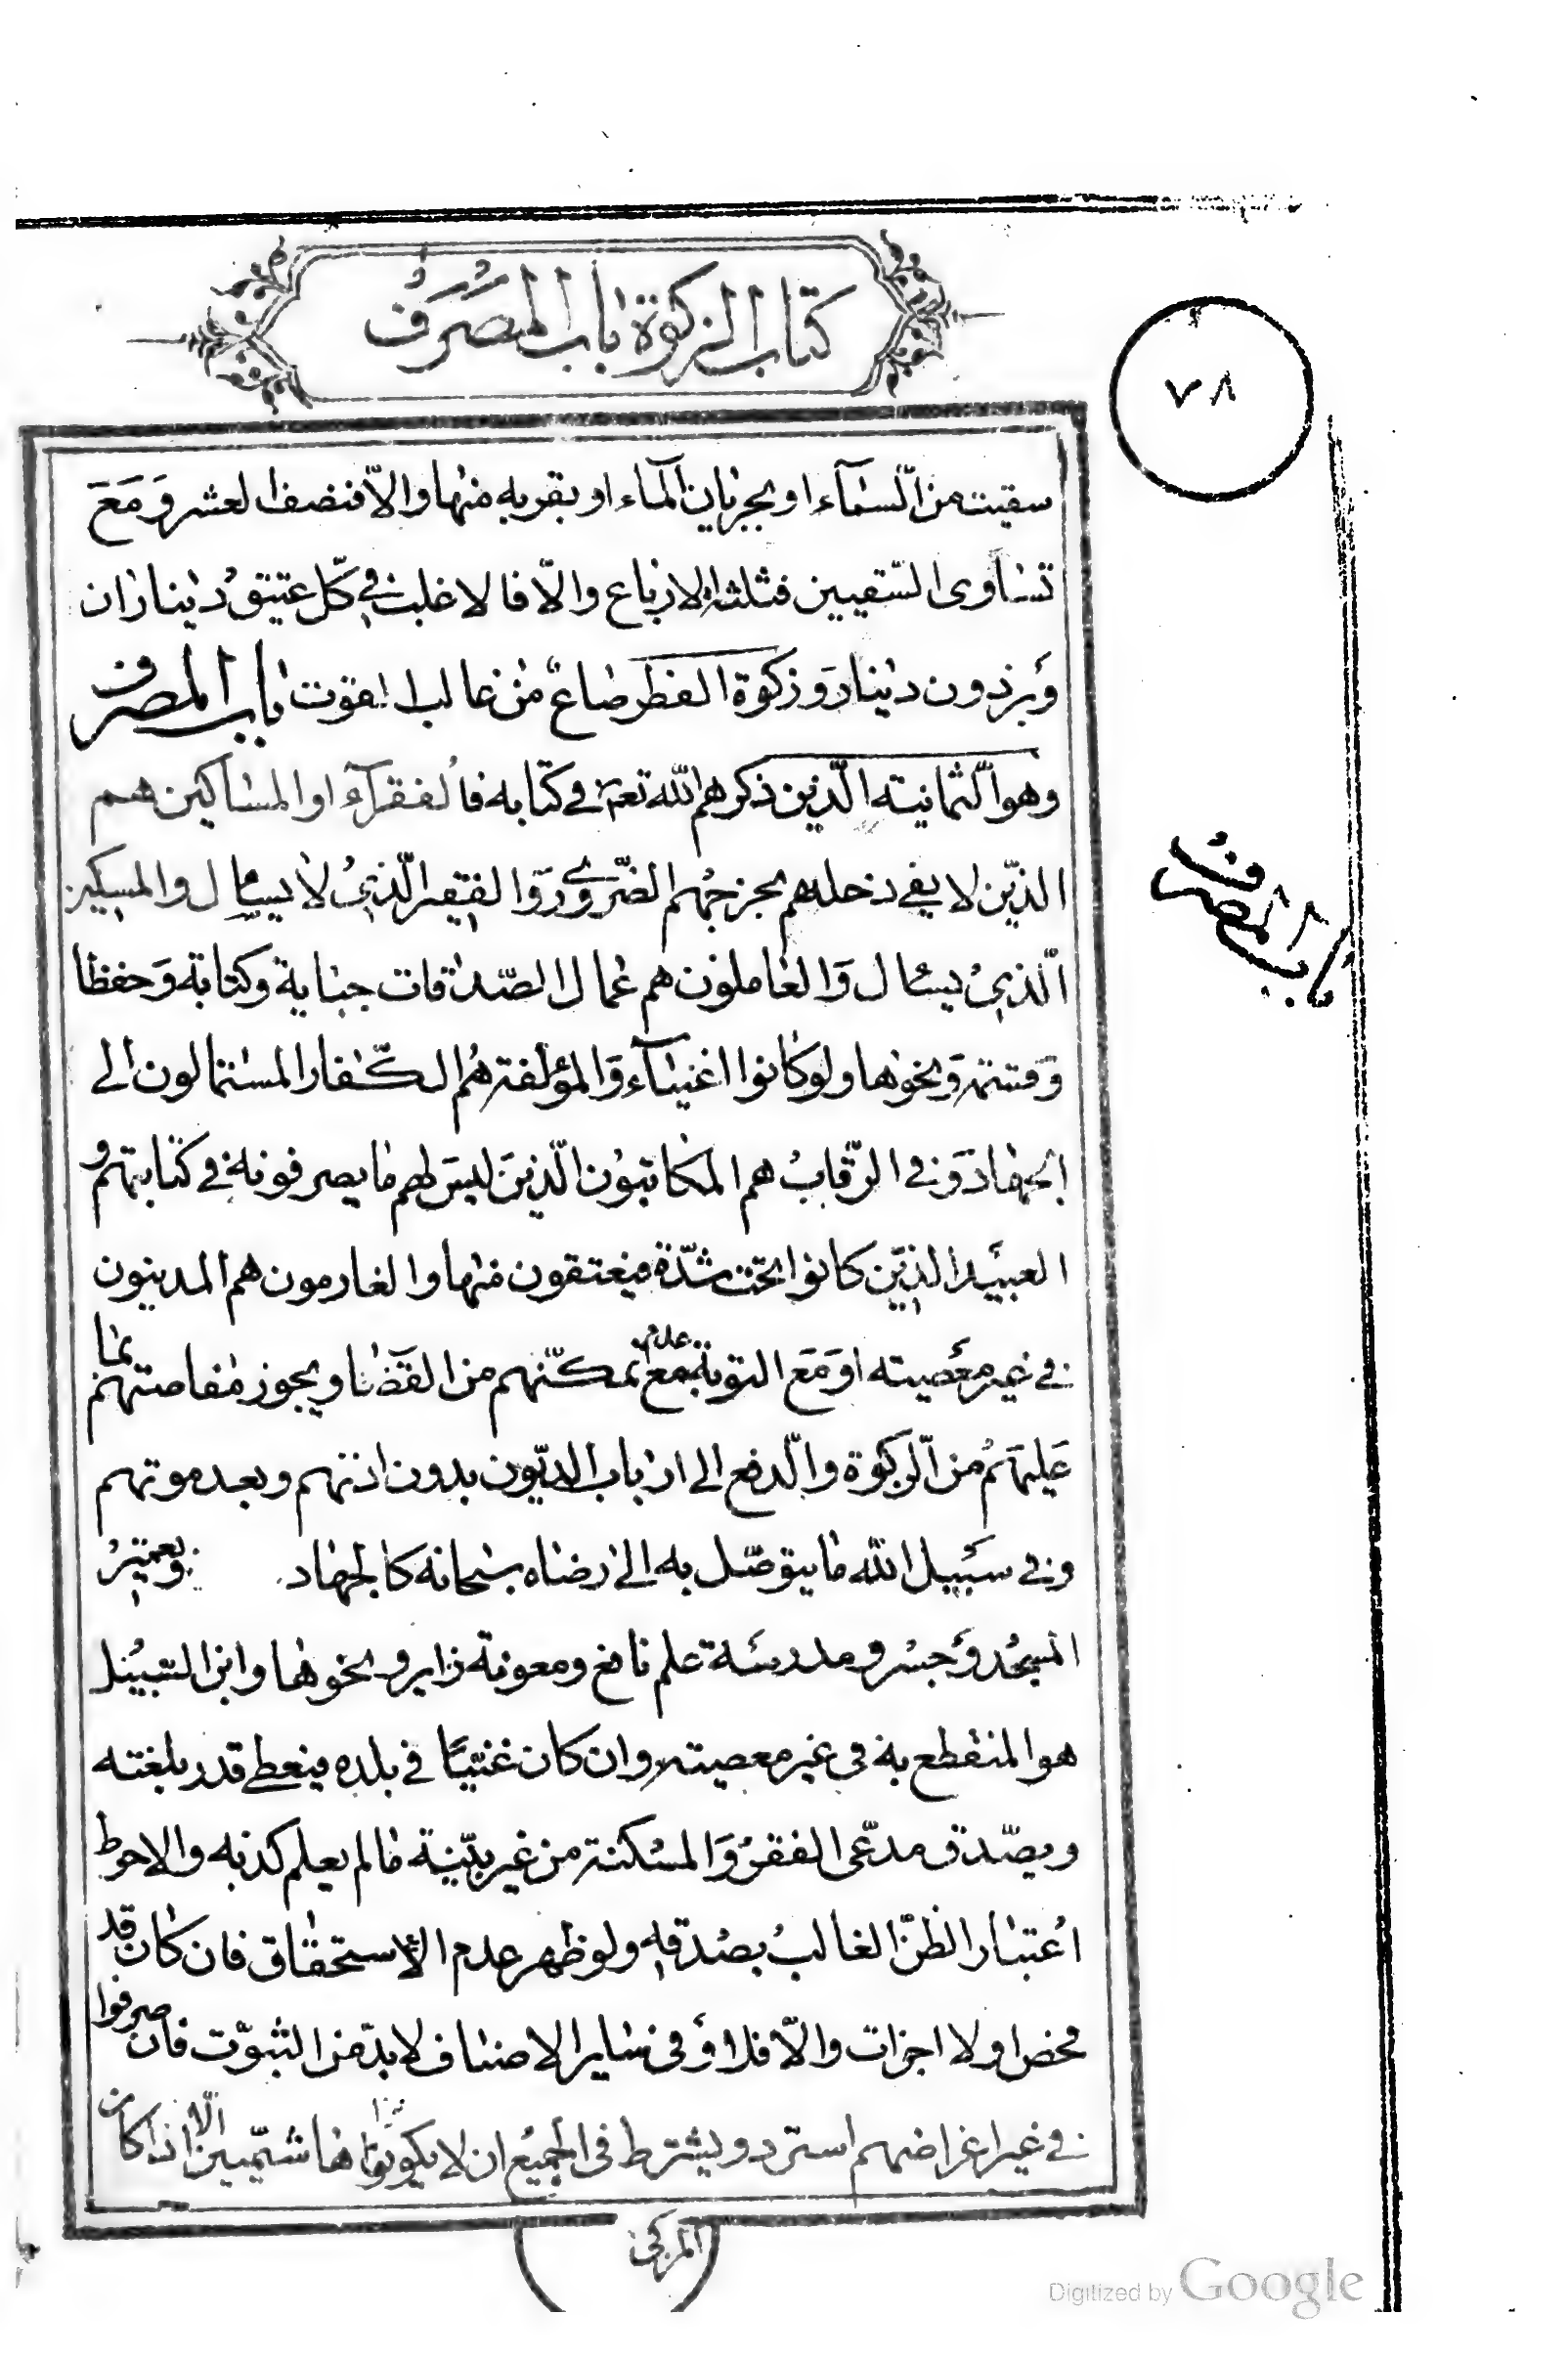 كتاب الزكوة باب المصرف
٧٨
سقيت من السّماء او بجريان الماء او بقربه منها والّا فنصف العشر وَمَعَ
تساوى السّقيين فثلثة الارباع والّا فالاغلب فى كلّ عتيقُ ديناران
وَبرذون دينار وَزكوة الفطر صاعٌ من غالب القوت باب المصرف
وهو الثمانيته الّذين ذكرهم اللّه تعم فى كتابه فالفقرآء او المساكين هم
الذّين لا يفى دخلهم بخرجهم الضّرورى وَالفقير الّذىُ لا يسأل والمسكين
الّذىُ يسئال وَالعاملون هم عمال الصّدقات جباية وكتابة وَحفظا
وَقسمته وَنحوها ولو كانوا اغنيآء وَالمؤلفة هُم الكفّار المستمالون الى
الجهاد وَفى الرّقابُ هم المكاتبون الّذينَ ليسَ لهم ما يصرفونه فى كتابتهم و
العبيد الذّين كانوا تحت شدّة فيعتقون منها والغارمون هم المدينون
فى غير معصيته او مَع التوبة مع عدم تمكّنهم من القضا ويجوز مقاصتهم بما
عَليهَمُ من الّزكوة والّدفع الى ارباب الديّون بدون اذنهم وبعد موتهم
وفى سَبيل اللّه ما يتوصّل به الى رضاه سبحانه كالجهاد وتعميرُ
المسجُد وَجسْر ومدرسَة علم نافع ومعونة زاير ونحوها وابن السّبيُل
هو المنقطع به فى غير معصيته وان كان غنيّاً فى بلده فيعطى قدر بلغته
ويصّدق مدّعى الفقرُ وَالمسْكنة من غير بيّنة ما لم يعلم كذبه والاحوط
اعُتبار الظنّ الغالبُ بصُدقه ولو ظهر عدم الاستحقاق فان كان قد
فحص اولا اجزات والّا فلا وَفى ساير الاصناف لا بدّ من الثبوّت فان صرفوا
فى غير اغراضهم استرد ويشترط فى الجميُع ان لا يكونوا هاشميّين الّا اذا كان
المزكى
باب المصرف
Digitized by Google